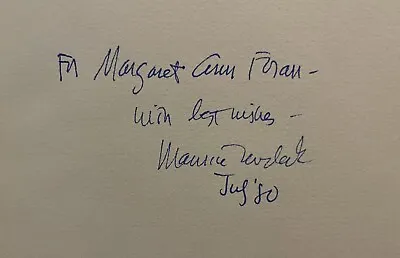 For Margaret Ann Foran –
with best wishes –
Maurice
'80